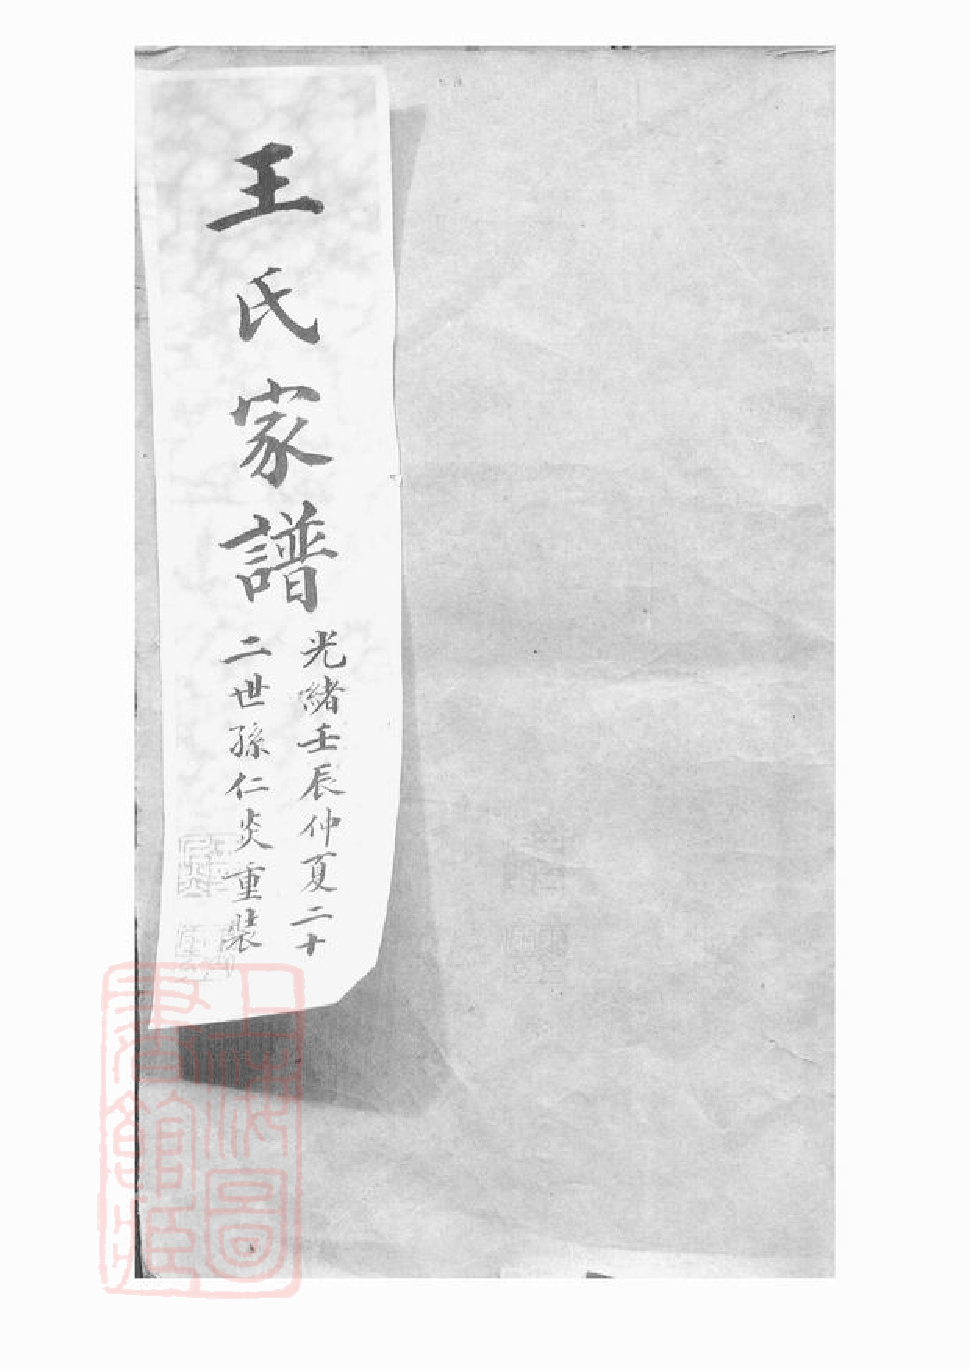 王氏家譜
光緒壬辰仲夏二十
二世孫仁炎重裝
上海圖書館藏